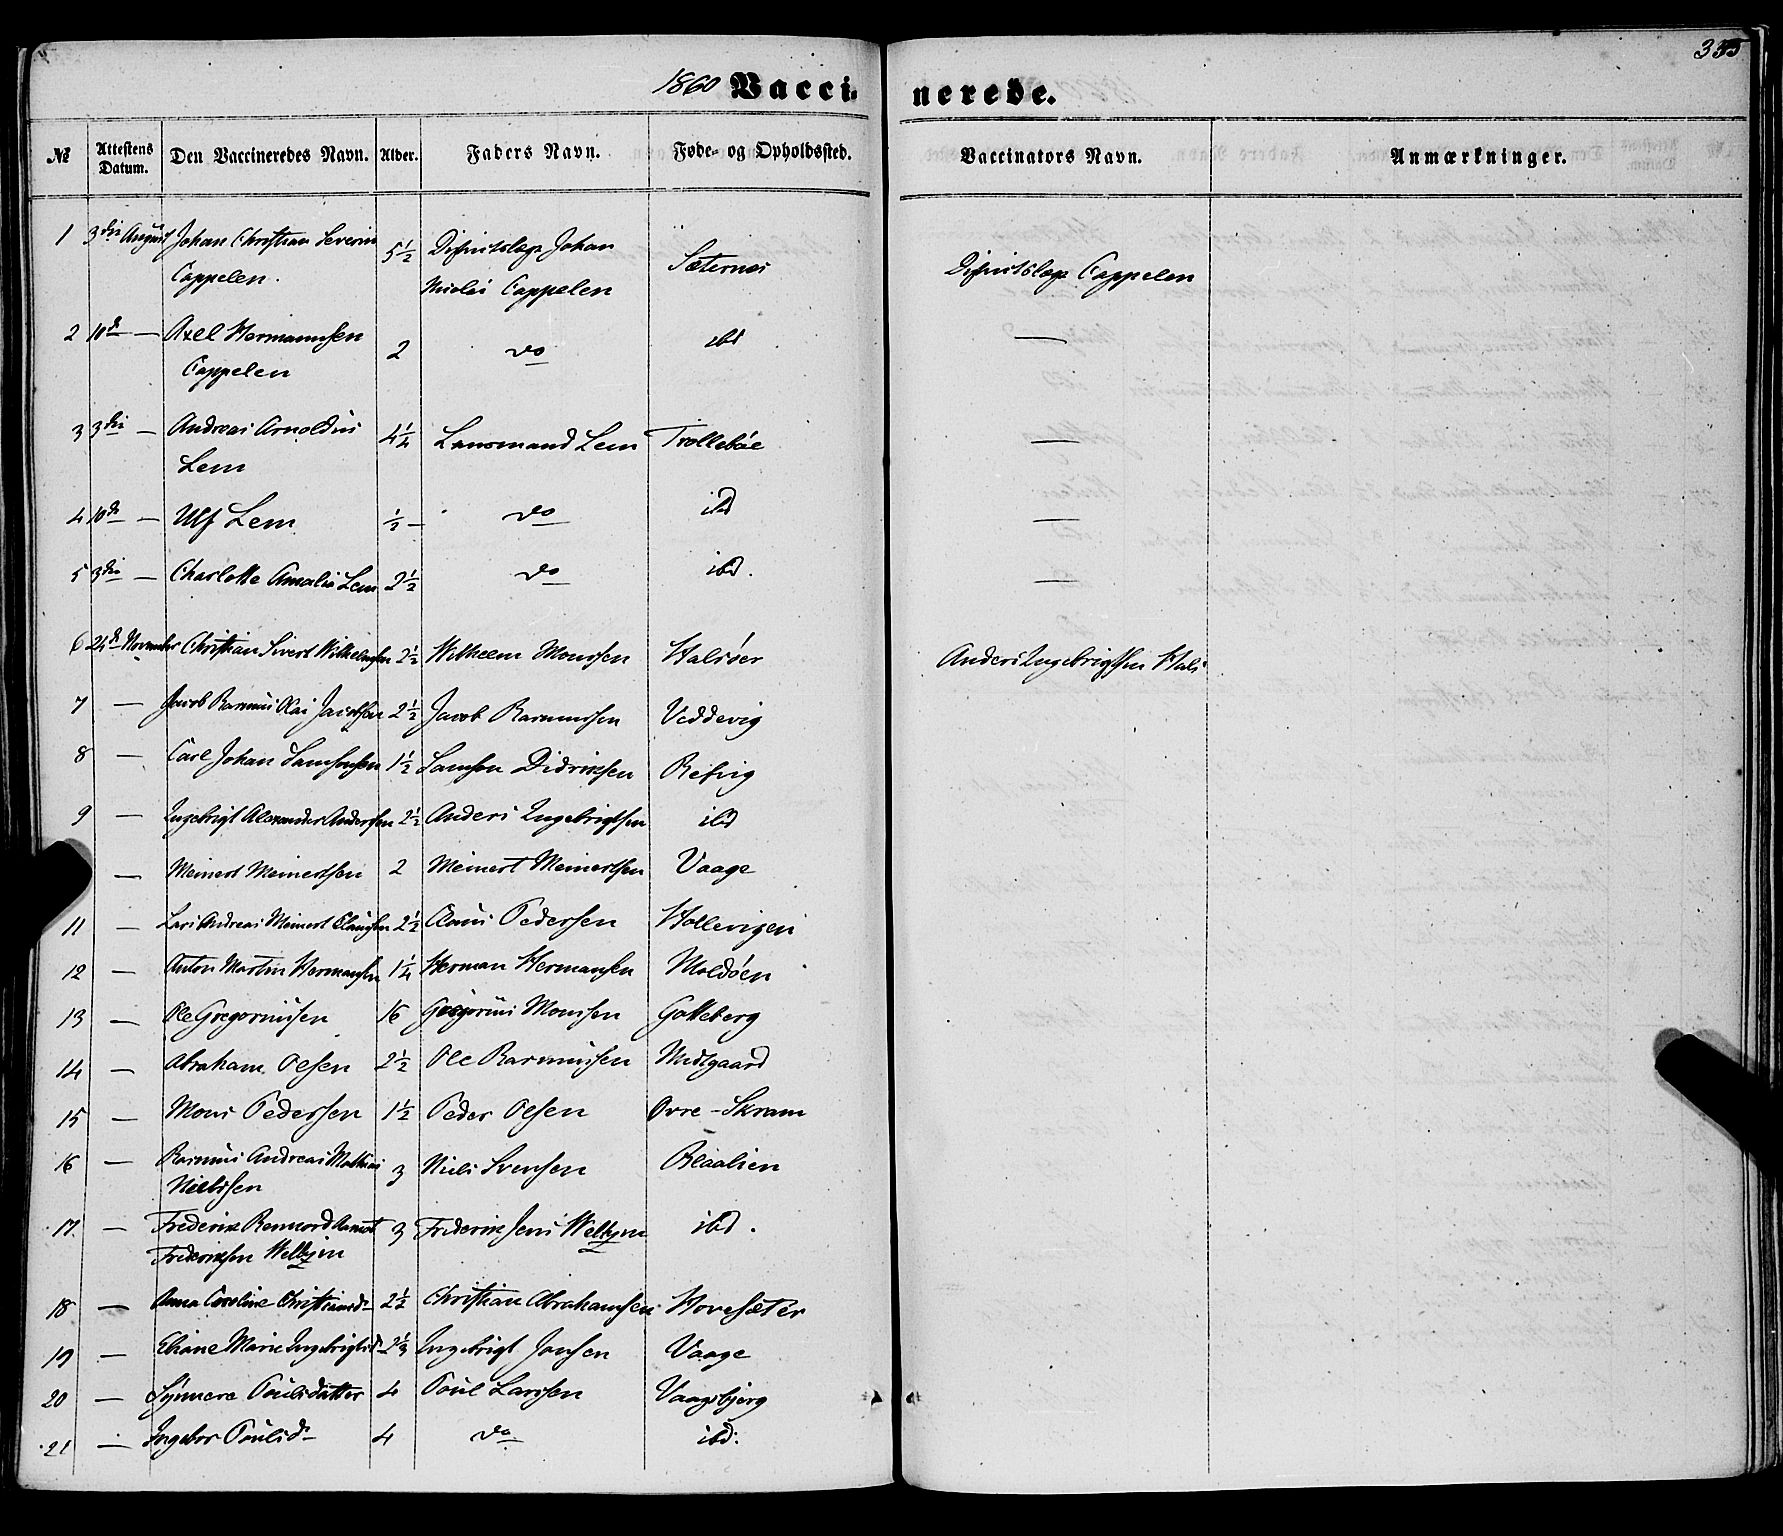 335
1860 Vacci- nerede.
№ Attestens Datum. Den Vaccineredes Navn. Alder. Faders Navn. Føde- og Opholdssted. Vaccinators Navn. Anmærkninger.
1 3die August Johan Christian Severin 5½ Distriktslæge Johan
Cappelen. Nicolai Cappelen Sæternes Distriktslæge Cappelen
2 10de — Axel Hermannsen 2 do ibd —
Cappelen
3 3die — Andreas Arnoldus 4¼ Lensmand Lem Trollebøe —
Lem
4 10de — Ulf Lem ½ — do ibd —
5 3die — Charlotte Amalia Lem 2½ do ibd. —
6 24de November Christian Sivert Wilhelmsen 2½ Wilhelm Monssen Halsøer Anders Ingebrigtsen Hals
7 — Jacob Rasmus Olai Jacobsen 2½ Jacob Rasmussen Veddevig
8 — Carl Johan Samsonsen 1½ Samson Didriksen Refvig
9 — Ingebrigt Alexander Andersen 2½ Anders Ingebrigtsen ibd
— Meinert Meinertsen 2 Meinert Meinertsen Vaage
11 — Lars Andreas Meinert Claussen 2½ Claus Pedersen Hollevigen
12 — Anton Martin Hermansen 1¼ Herman Hermansen Moldøen
13 — Ole Gregoriussen 16 Gregorius Monssen Gotteberg
14 — Abraham Olsen 2½ Ole Rasmussen Midtgaard
15 — Mons Pedersen 1½ Peder Olsen Øvre-Skram
16 — Rasmus Andreas Mathias 3 Niels Svensen Blaalien
Nielssen
17. — Frederik Bernhard 3 Frederik Jens Welhjen ibd.
Frederiksen Welhjen
18 — Anna Caroline Christiansd. 2½ Christian Abrahamsen Hovesæter
19 — Eliane Marie Ingebrigtsd. 2⅓ Ingebrigt Jonsen Vaage
20 — Synneva Poulsdatter 4 Poul Larssen Vaagsbjerg
21 — Ingebor Poulsd. 4 do ibd.